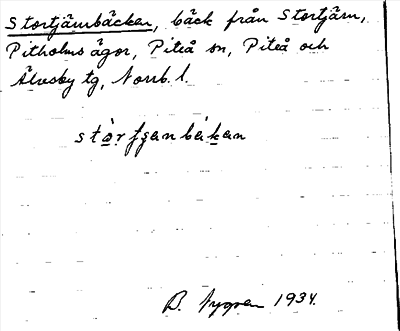 Stortjärnbäcken, bäck från Stortjärn,
Pitholms ägor, Piteå sn, Piteå och
Älvsby tg, Norrb. l.
stòrfşanbákan
B. Nygren 1934.